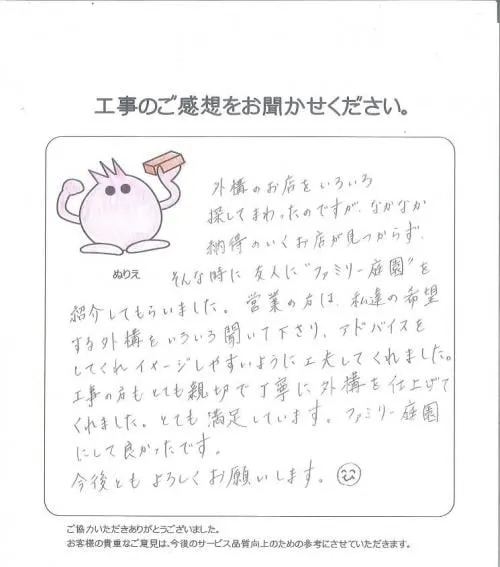 工事のご感想をお聞かせください。
外構のお店をいろいろ
探してまわったのですが、なかなか
納得のいくお店が見つからず、
ぬりえ
そんな時に友人に"ファミリー庭園"を
紹介してもらいました。営業の方は、私達の希望
する外構をいろいろ聞いて下さり、アドバイスを
してくれイメージしやすいように工夫してくれました。
工事の方もとても親切で丁寧に外構を仕上げて
くれました。とても満足しています。ファミリー庭園
にして良かったです。
今後ともよろしくお願いします。
ご協力いただきありがとうございました。
お客様の貴重なご意見は、今後のサービス品質向上のための参考にさせていただきます。